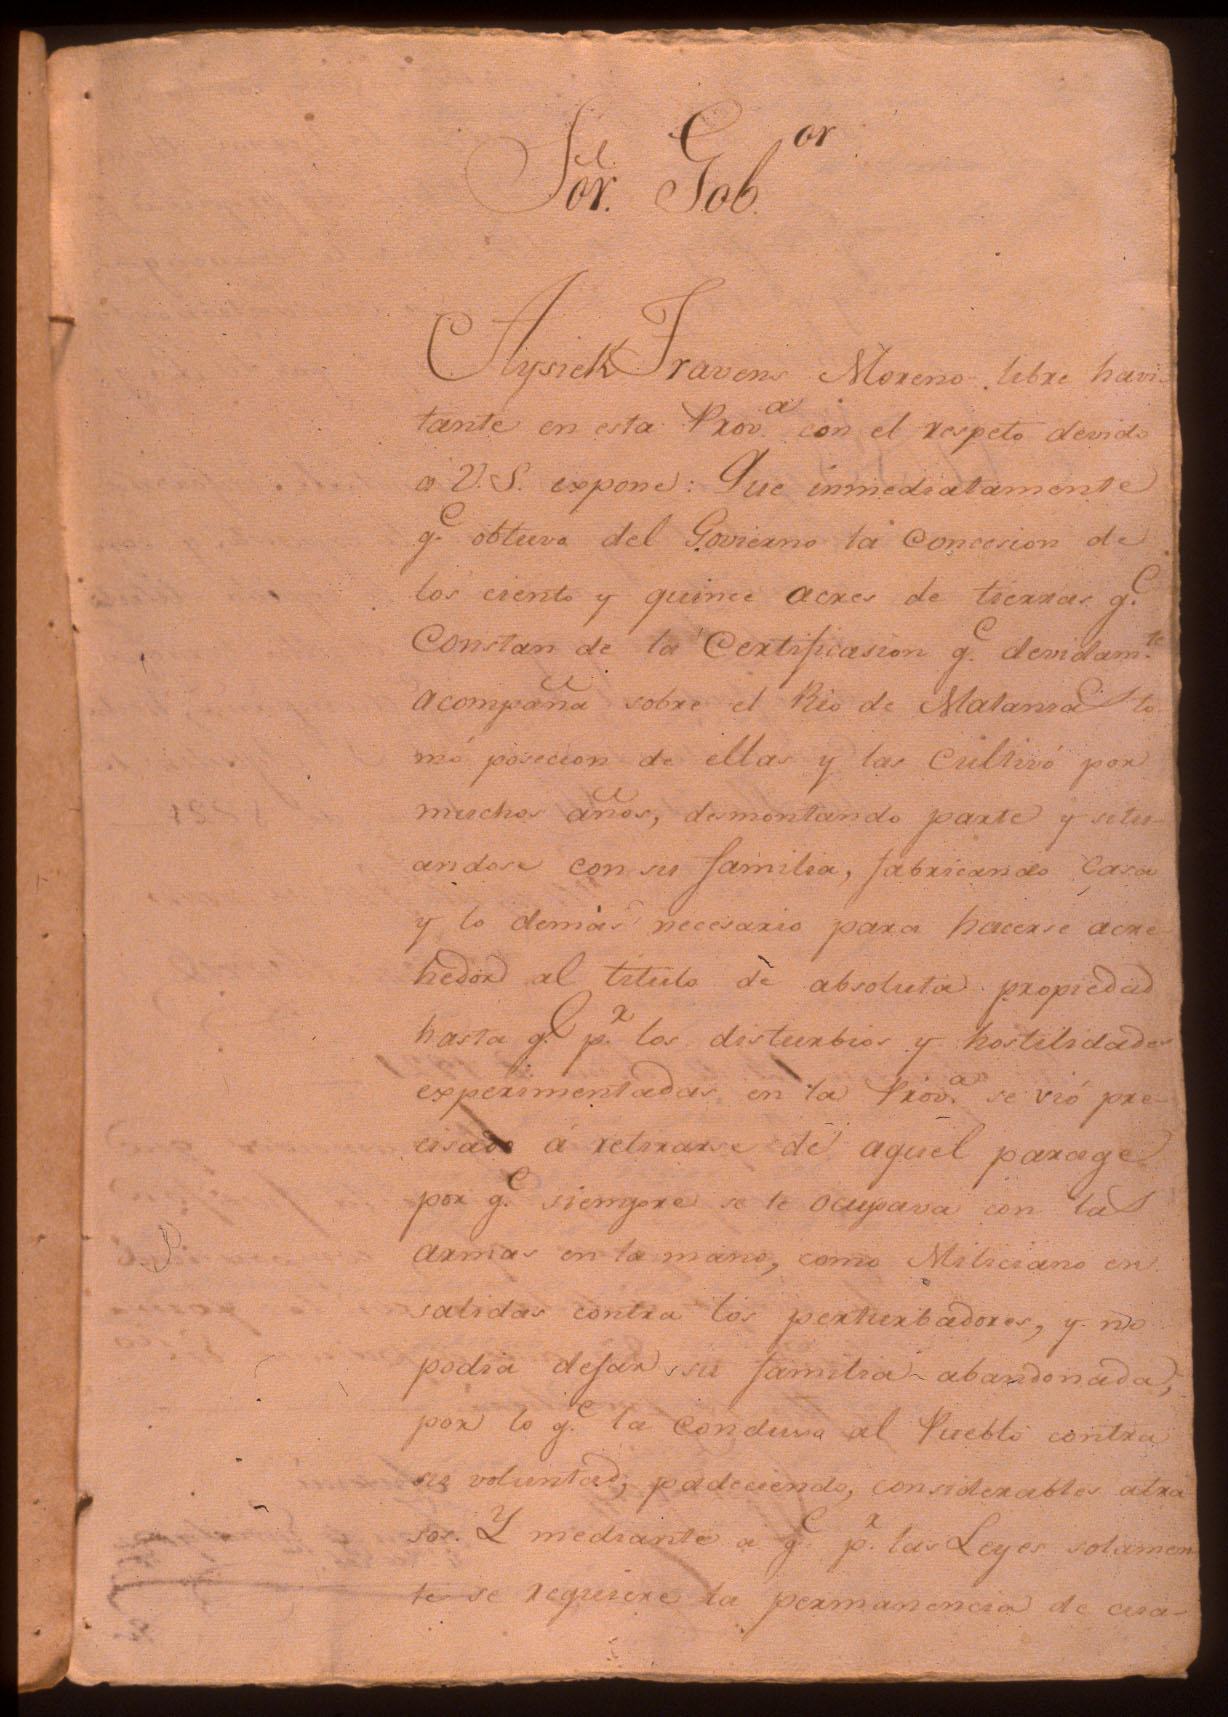 Sõr. Gob.or
Aysick Travens Moreno libre havi-
tante en esta Prov.a con el respeto devido
a V.S. expone: Que inmediatamente
q.e obtuvo del Govierno la Concesion de
los ciento y quince acres de tierras q.e
Constan de la Certificasion q.e devidam.te
acompaña sobre el Rio de Matanzas to
mó posecion de ellas y las cultivó por
muchos años, desmontando parte y situ-
andose con su familia, fabricando casa
y lo demas necesario para hacerse acre-
hedor al titulo de absoluta propiedad
hasta q.e p.r los disturbios y hostilidades
experimentadas en la Prov.a se vió pre-
cisado á retirarse de aquel parage
por q.e siempre se le ocupava con las
armas en la mano, como Miliciano en
salidas contra los perturbadores, y no
podia dejar su familia abandonada,
por lo q.e la condujo al Pueblo contra
su voluntad, padeciendo, considerables atra
sos. Y mediante a q.e p.r las Leyes solamen
te se requiere la permanencia de cua-